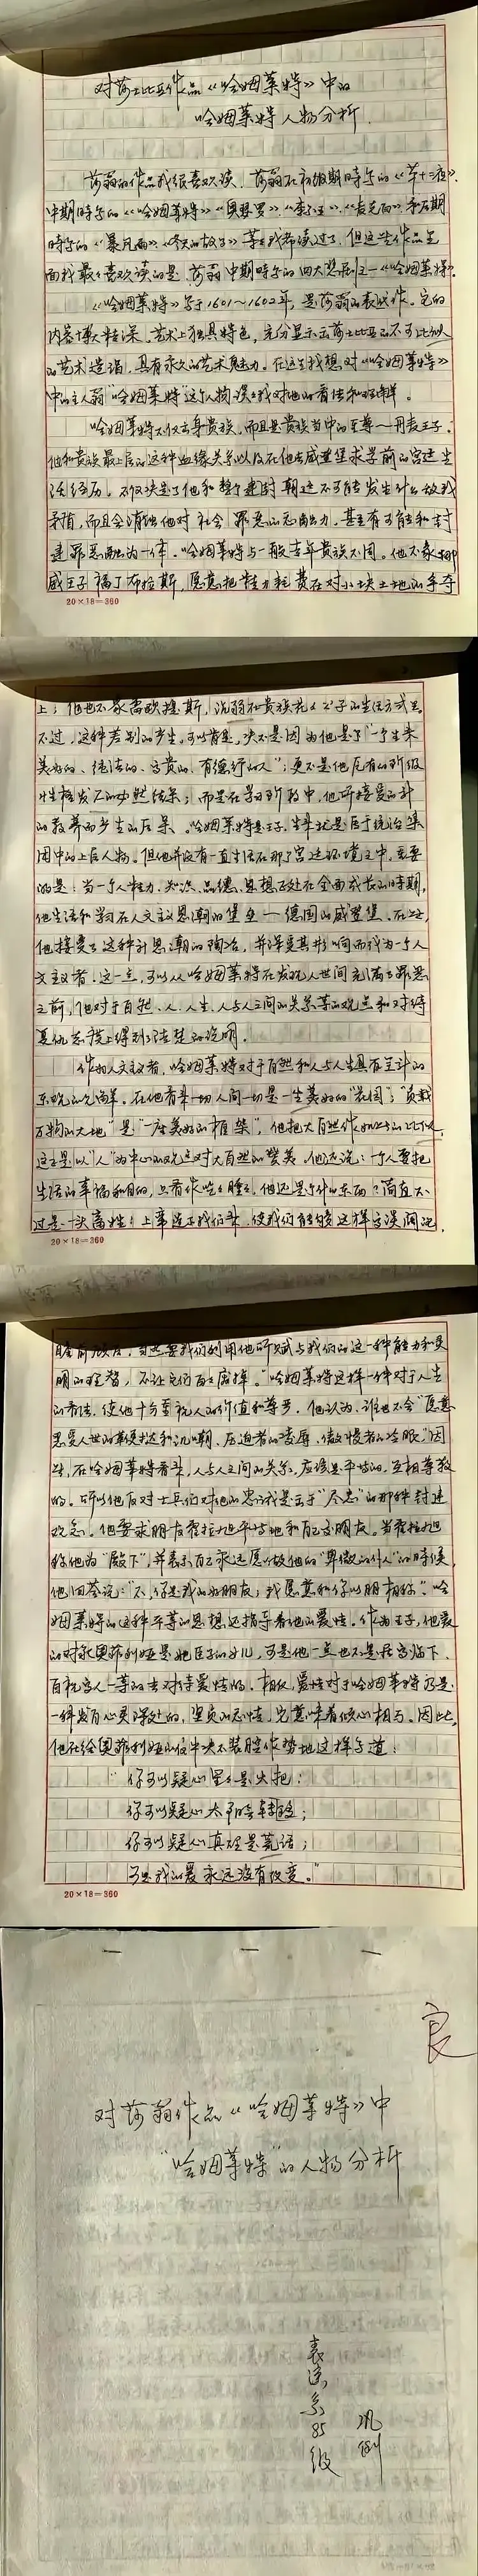 对莎士比亚作品《哈姆莱特》中的
哈姆莱特人物分析
莎翁的作品我很喜欢读. 莎翁在初级期时写的《第十二夜》.
中期时写的《哈姆莱特》《奥瑟罗》《李尔王》《麦克白》和后期
时写的《暴风雨》《冬天的故事》等等我都读过了. 但这些作品里
面我最喜欢读的是莎翁中期时写的四大悲剧之一《哈姆莱特》.
《哈姆莱特》写于1601～1602年, 是莎翁的代表作. 它的
内容博大精深. 艺术上独具特色, 充分显示出莎士比亚的不可比拟
的艺术造诣, 具有永久的艺术魅力. 在这里我想对《哈姆莱特》
中的主人翁"哈姆莱特"这个人物谈谈我对他的看法和理解.
哈姆莱特不仅出身贵族, 而且是贵族当中的至尊——丹麦王子.
他和贵族最上层的这种血缘关系以及在他去威登堡求学前的宫廷生
活经历. 不仅决定了他和整个建封朝廷不可能发生什么敌我
矛盾, 而且会消蚀他对社会罪恶的忍耐力, 甚至有可能和封
建罪恶融为一体. 哈姆莱特与一般青年贵族不同. 他不象挪
威王子福丁布拉斯, 愿意把精力耗费在对小块土地的争夺
20×18=360
上; 他也不象雷欧提斯, 沉溺和贵族花花公子的生活方式里.
不过, 这种差别的产生, 可以肯定, 决不是因为他是了"一个生来
美好的、纯洁的、高贵的、有德行的人"; 更不是他原有的阶级
性格发展的必然结果; 而是在学习阶段中, 他所接受的新
的教养而产生的后果. 哈姆莱特是王子. 生来就是属于统治集
团中的上层人物. 但他并没有一直生活在那个宫廷环境之中, 重要
的是: 当一个人精力、知识、品德、思想正处在全面成长的时期,
他生活和学习在人文主义思潮的堡垒—德国的威登堡. 在这,
他接受了这种新思潮的陶冶, 并深受其影响而成为一个人
文主义者. 这一点, 可以从哈姆莱特在发现人世间充满了罪恶
之前, 他对于自然、人、人生、人与人之间的关系等的观点和对待
复仇态度上得到了清楚的说明.
作为人文主义者, 哈姆莱特对于自然和人与人生具有全新的
乐观的见解. 在他看来一切人间一切是一座美好的"花园"; "负载
万物的大地"是"一座美好的框架", 他把大自然作如此的比喻,
这正是以"人"为中心的观点对大自然的赞美. 他还说: 一个人要把
生活的幸福和目的, 只看作吃吃睡睡, 他还是个什么东西? 简直不
过是一头畜牲! 上帝造下我们来, 使我们能够这样高谈阔论,
20×18=360
瞻前顾后, 当然要我们利用他所赋与我们的这一种能力和灵
明的理智, 不让它们白白废掉. "哈姆莱特这样一种对于人生
的看法, 使他十分重视人的价值和尊严. 他认为, 谁也不会"愿意
忍受人世的鞭挞和讥嘲、压迫者的凌辱、傲慢者的冷眼". 因
此, 在哈姆莱特看来, 人与人之间的关系, 应该是平等的, 互相尊敬
的. 所以他反对士兵们对他的忠诚是出于"尽忠"的那种封建
观念. 他要求朋友霍拉旭平等地和自己交朋友. 当霍拉旭
称他为"殿下", 并表示自己永远愿做他的"卑微的仆人"的时候,
他回答说: "不, 你是我的好朋友; 我愿意和你以朋友相称". 哈
姆莱特的这种平等的思想还指导着他的爱情. 作为王子, 他爱
的对象奥菲利娅是她臣子的女儿, 可是他一点也不是居高临下、
自视高人一等的去对待爱情的. 相反, 爱情对于哈姆莱特乃是
一种发自心灵深处的, 坚贞的恋情, 它意味着倾心相与. 因此,
他在给奥菲利娅的信中决不装腔作势地这样写道:
"你可以疑心星星是火把;
你可以疑心太阳会移转;
你可以疑心真理是谎话;
可是我的爱永远没有改变. "
20×18=360
良
对莎翁作品《哈姆莱特》中
"哈姆莱特"的人物分析
表演系85级
巩俐